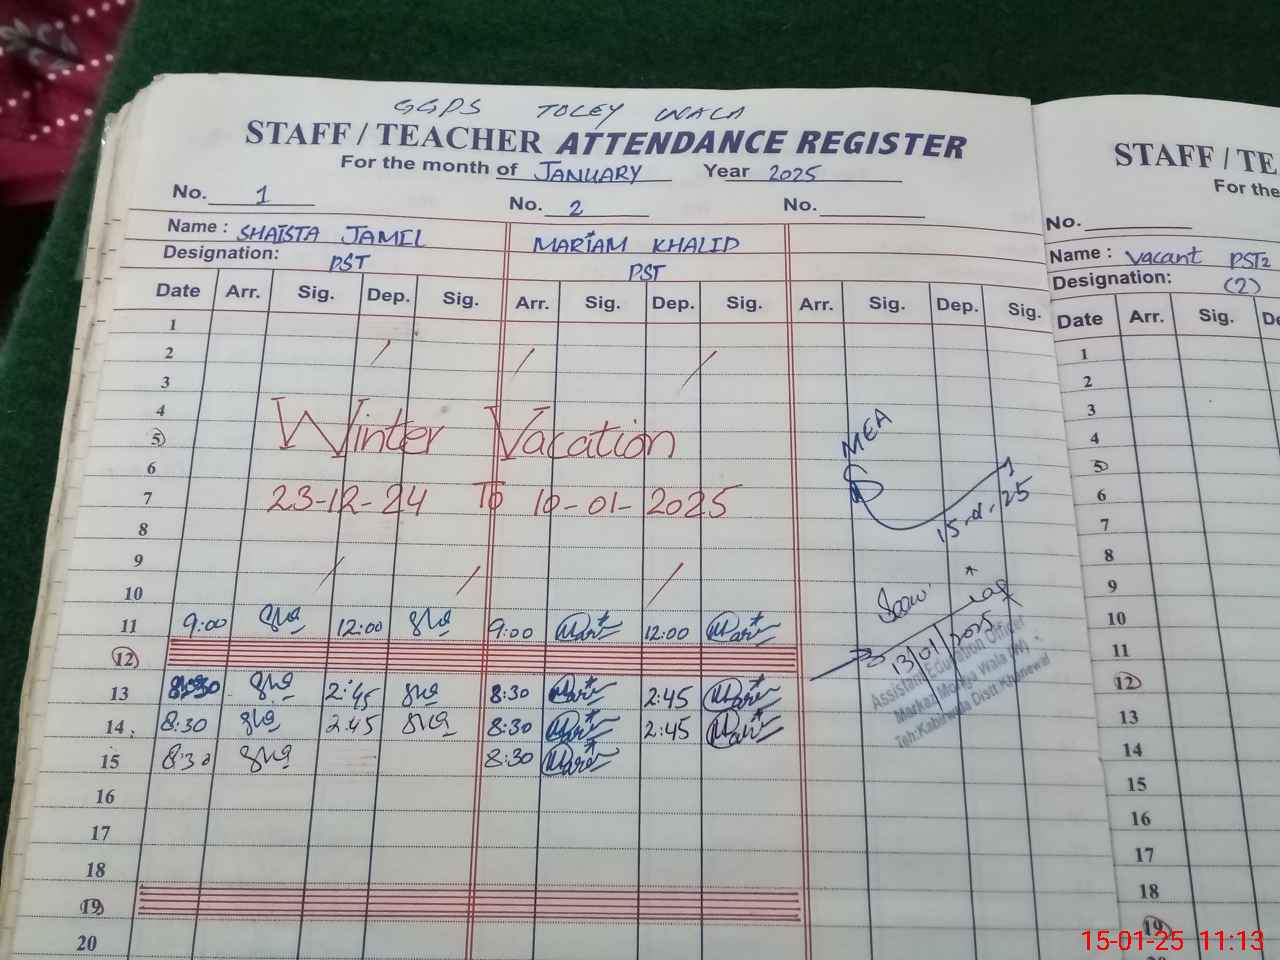 GGPS TOLEY WALA
STAFF / TEACHER ATTENDANCE REGISTER
For the month of JANUARY Year 2025
No. 1 No. 2 No.
Name : SHAISTA JAMIL MARIAM KHALID
Designation: PST PST
Date Arr. Sig. Dep. Sig. Arr. Sig. Dep. Sig. Arr. Sig. Dep. Sig.
1
2
3
4
5
6
7
8
9
10
Winter Vacation
23-12-24 To 10-01-2025
11 9:00 12:00 9:00 12:00
12
13 8:30 2:45 8:30 2:45
14 8:30 2:45 8:30 2:45
15 8:30 8:30
16
17
18
19
20
MEA
15-01-25
13/01/2025
Assistant Education Officer
Markaz Wala (W)
Teh:Kabirwala Distt:Khanewal
STAFF / TE
For the
No.
Name : Vacant PST2
Designation: (2)
Date Arr. Sig. De
1
2
3
4
5
6
7
8
9
10
11
12
13
14
15
16
17
18
19
15-01-25 11:13